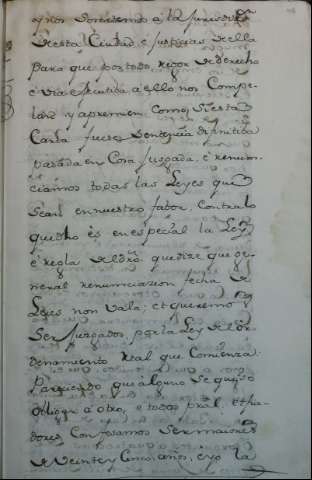 y nos sometemos á la Jurisdizⁿ
de esta Ciudad, é justicias de ella
para que por todo rigor de derecho
é via executiba á ello nos Compe-
lan y apremien como si esta
Carta fuese Sentencia difinitiba
pasada en Cosa Juzgada, é renun-
ciamos todas las Leyes que
Sean en nuestro fabor, contra lo
que dho és, en especial la Ley
é regla del dro. que dize que ge-
neral renunciacion fecha de
Leyes non vala; et queremos
Ser Juzgados, por la Ley del or-
denamiento Real que Comienza:
Pareciendo que alguno Se quiso
obligar á otro, e todos
Confesamos Ser maiores
de Veinte y Cinco años, é yo la